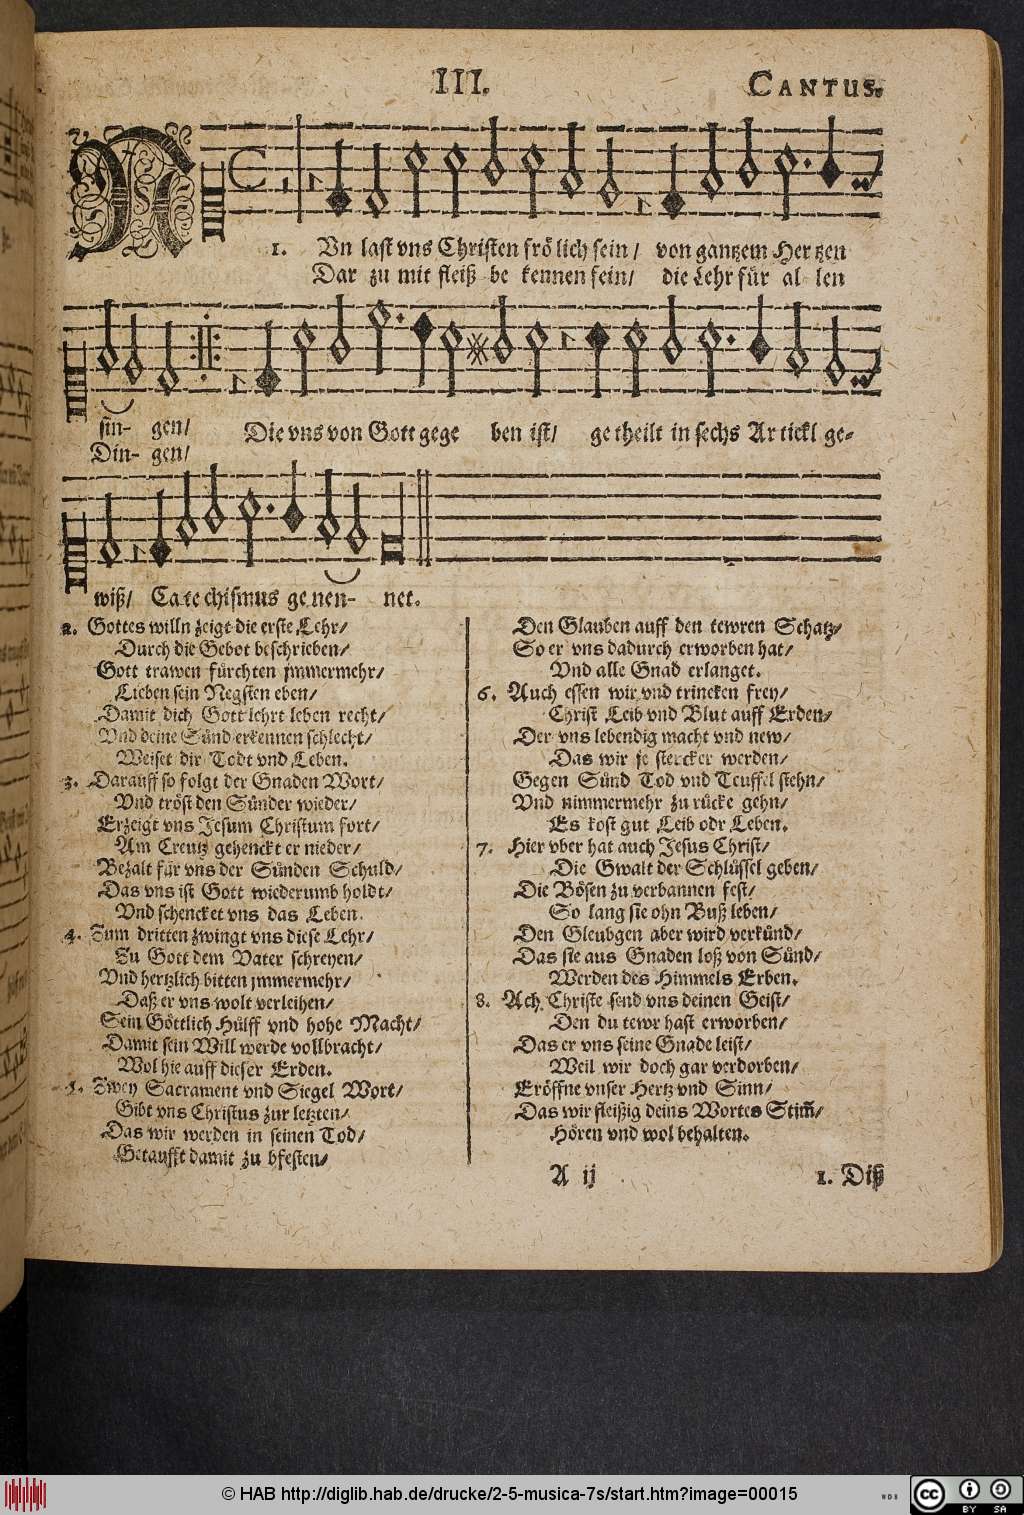 III.
CANTUS.
NUn last vns Christen frölich sein/ von gantzem Hertzen
Dar zu mit fleiß be kennen sein/ die Lehr für al- len
sin- gen/ Die vns von Gott gege ben ist/ ge theilt in sechs Ar tickl ge-
Din- gen/
wiß/ Ca te chismus ge nen- net.
2. Gottes willn zeigt die erste Lehr/
Durch die Gebot beschrieben/
Gott trawen fürchten jmmermehr/
Lieben sein Negsten eben/
Damit dich Gott lehrt leben recht/
Vnd deine Sünd erkennen schlecht/
Weiset dir Todt vnd Leben.
3. Darauff so folgt der Gnaden Wort/
Vnd tröst den Sünder wieder/
Erzeigt vns Jesum Christum fort/
Am Creutz gehenckt er nieder/
Bezalt für vns der Sünden Schuld/
Das vns ist Gott wiederumb holdt/
Vnd schencket vns das Leben.
4. Zum dritten zwingt vns diese Lehr/
Zu Gott dem Vater schreyen/
Vnd hertzlich bitten jmmermehr/
Daß er vns wolt verleihen/
Sein Göttlich Hülff vnd hohe Macht/
Damit sein Will werde vollbracht/
Wol hie auff dieser Erden.
5. Zwey Sacrament vnd Siegel Wort/
Gibt vns Christus zur letzten/
Das wir werden in seinen Tod/
Getaufft damit zu bfesten/
Den Glauben auff den tewren Schatz/
So er vns dadurch erworben hat/
Vnd alle Gnad erlanget.
6. Auch essen wir vnd trincken frey/
Christ Leib vnd Blut auff Erden/
Der vns lebendig macht vnd new/
Das wir je stercker werden/
Gegen Sünd Tod vnd Teuffel stehn/
Vnd nimmermehr zu rücke gehn/
Es kost gut Leib odr Leben.
7. Hier vber hat auch Jesus Christ/
Die Gwalt der Schlüssel geben/
Die Bösen zu verbannen fest/
So lang sie ohn Buß leben/
Den Gleubgen aber wird verkünd/
Das sie aus Gnaden loß von Sünd/
Werden des Himmels Erben.
8. Ach Christe send vns deinen Geist/
Den du tewr hast erworben/
Das er vns seine Gnade leist/
Weil wir doch gar verdorben/
Eröffne vnser Hertz vnd Sinn/
Das wir fleißig deins Wortes Stim̄/
Hören vnd wol behalten.
A ij
1. Diß
© HAB http://diglib.hab.de/drucke/2-5-musica-7s/start.htm?image=00015
WDB
cc BY SA